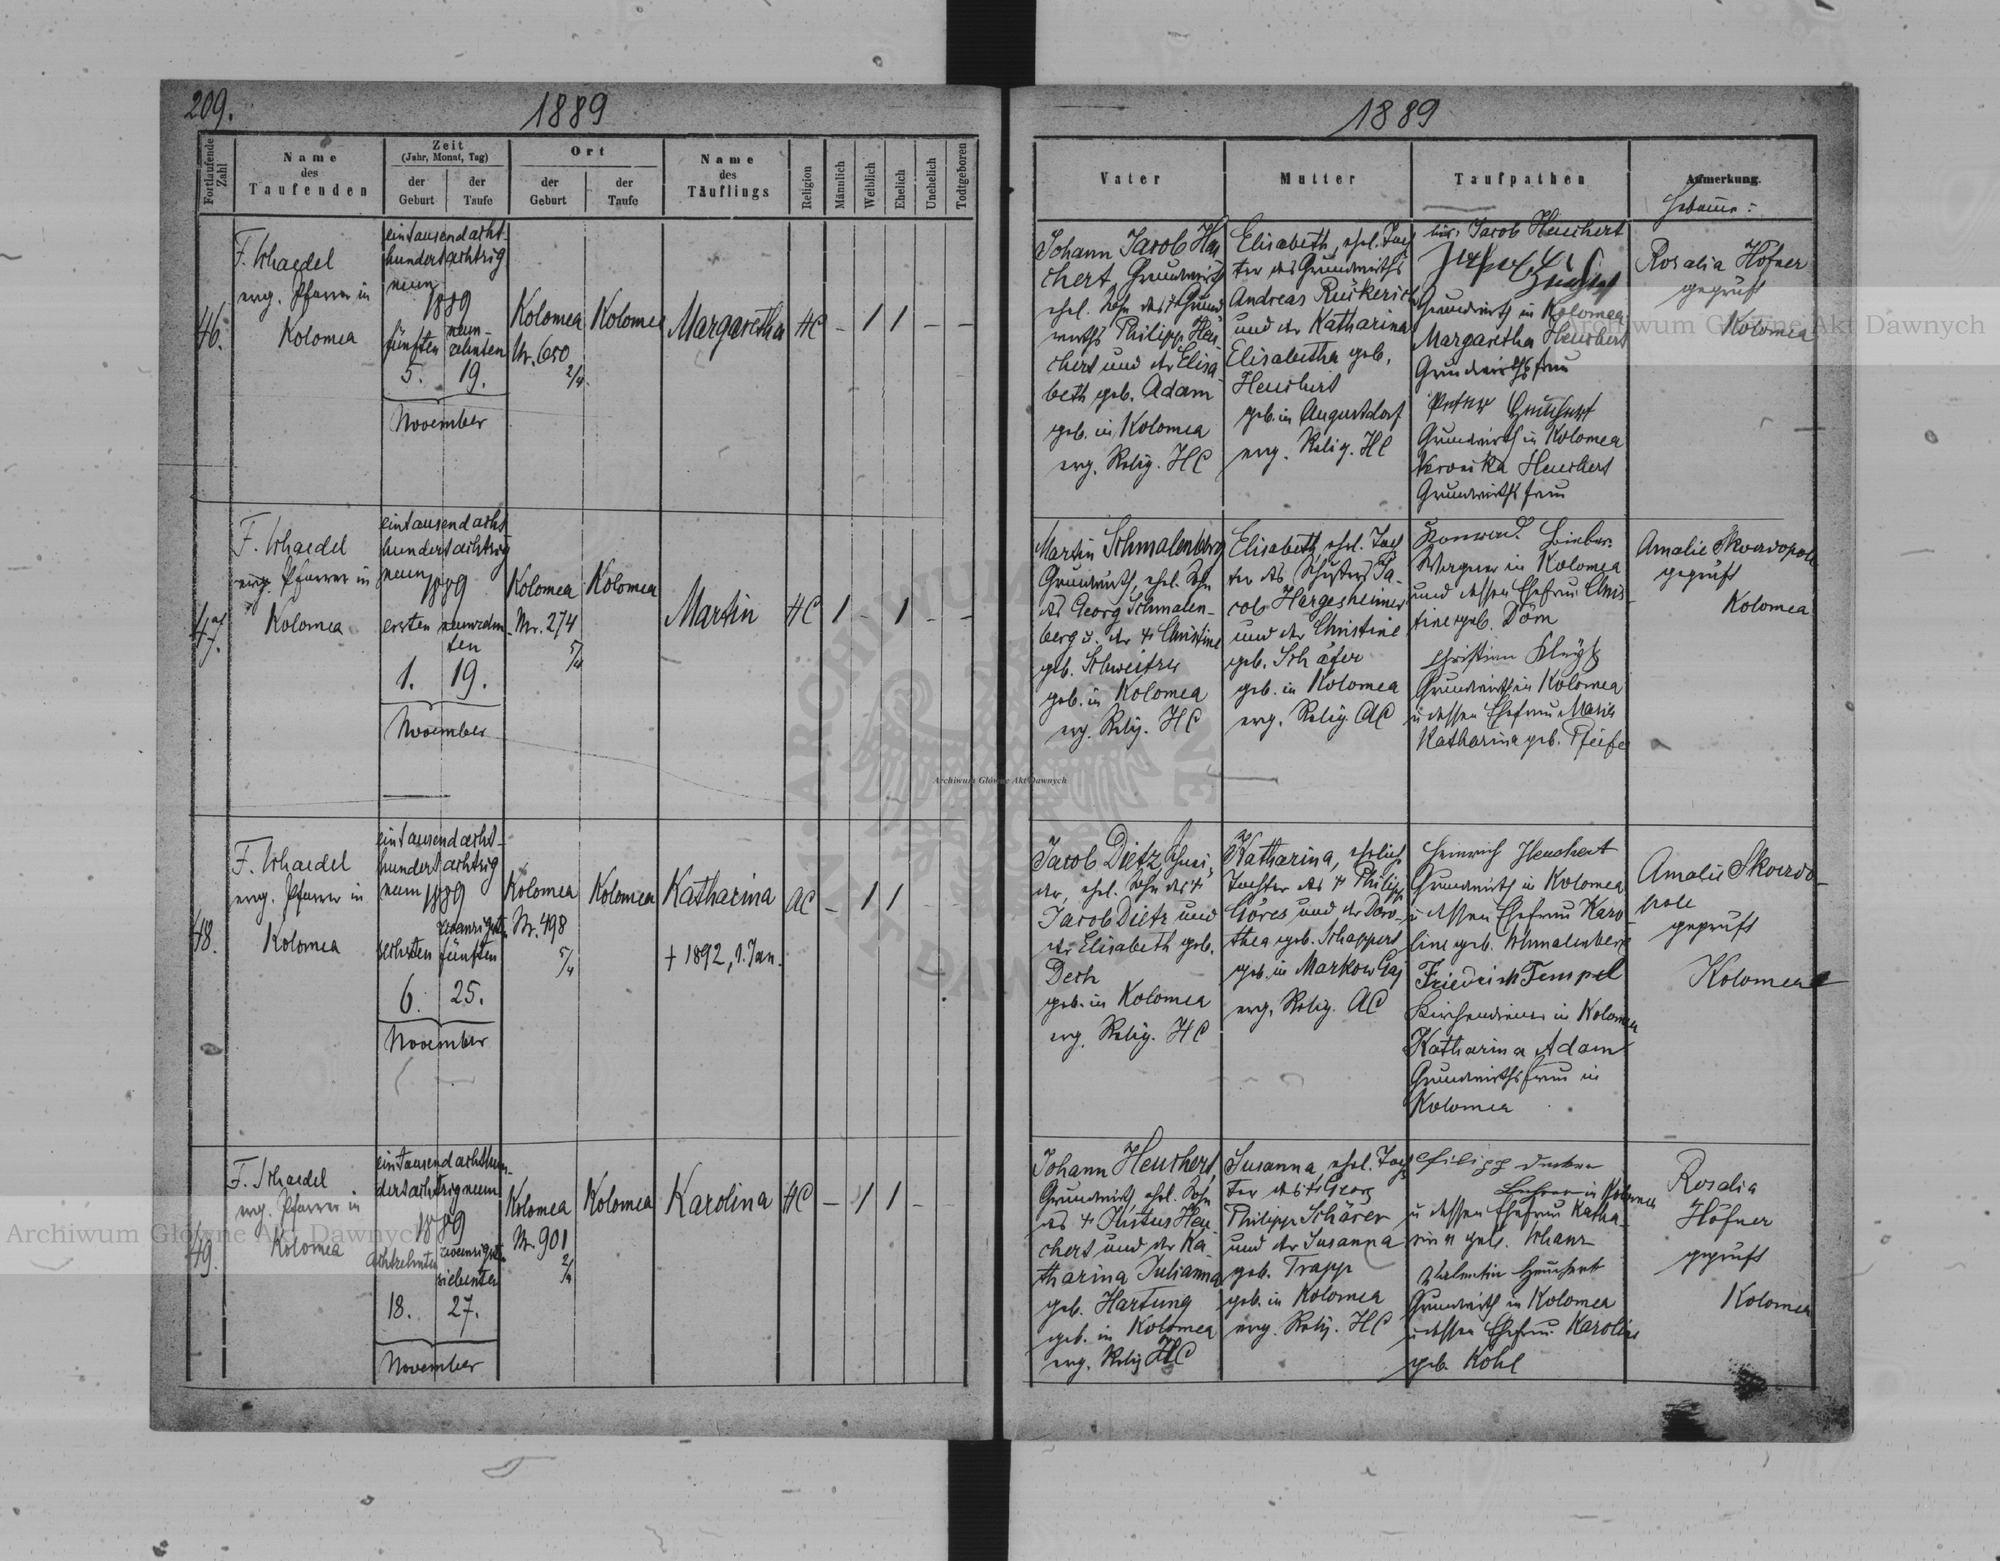 209.
1889
Fortlaufende Zahl
Name des Taufenden
Zeit
(Jahr, Monat, Tag)
der Geburt
der Taufe
Ort
der Geburt
der Taufe
Name des Täuflings
Religion
Männlich
Weiblich
Ehelich
Unehelich
Todtgeboren
46.
F. Schaedel
evg. Pfarrer in
Kolomea
eintausendacht
hundertachtzig
neun
1889
fünften
5.
neun-
zehnten
19.
November
Kolomea
Nr. 650
2/4
Kolomea
Margaretha
HC
–
1
1
–
–
47.
F. Schaedel
evg. Pfarrer in
Kolomea
eintausendacht
hundertachtzig
neun
1889
ersten
1.
neunzehn
ten
19.
November
Kolomea
Nr. 274
5/4
Kolomea
Martin
HC
1
–
1
–
–
48.
F. Schaedel
evg. Pfarrer in
Kolomea
eintausendacht-
hundertachtzig
neun
1889
sechsten
6.
fünften
25.
November
Kolomea
Nr. 498
5/4
Kolomea
Katharina
+ 1892, 1. Jan.
AC
–
1
1
–
–
49.
F. Schaedel
evg. Pfarrer in
Kolomea
eintausendachthun-
dertachtzigneun
1889
achtzehnten
18.
siebenten
27.
November
Kolomea
Nr. 901
2/4
Kolomea
Karolina
HC
–
1
1
–
–
1889
Vater
Mutter
Taufpathen
Anmerkung.
Hebamme:
Johann Jacob Heu
chert Grundwirth
ehel. Sohn des + Grund
wirths Philipp Heu-
chert und der Elisa
beth geb. Adam
geb. in Kolomea
evg. Relig. HC
Elisabeth, ehel. Toch
ter des Grundwirths
Andreas Rückerich
und der Katharina
Elisabetha geb.
Heuchert
geb. in Augustdorf
evg. Relig. HC
Jacob Heuchert
Grundwirth in Kolomea
Margaretha Heuchert
Grundwirthsfrau
Peter Heuchert
Grundwirth in Kolomea
Veronika Heuchert
Grundwirthsfrau
Rosalia Höfner
geprüft
Kolomea
Martin Schmalenberg
Grundwirth, ehel. Sohn
des Georg Schmalen-
berg u. der + Christine
geb. Schweitzer
geb. in Kolomea
evg. Relig. HC
Elisabeth, ehel. Toch
ter des Schusters Ja-
cob Hargesheimer
und der Christine
geb. Schäfer
geb. in Kolomea
evg. Relig. AC
Konrad Bieber
Wagner in Kolomea
und dessen Ehefrau Chris
tine geb. Dörn
Christian
Grundwirth in Kolomea
u dessen Ehefrau Maria
Katharina geb. Pfeifer
Amalie Skowdopole
geprüft
Kolomea
Jacob Dietz,
der, ehel. Sohn des +
Jacob Dietz und
der Elisabeth geb.
Dech
geb. in Kolomea
evg. Relig. HC
Katharina, ehelich
Tochter des + Philipp
Göres und der Doro-
thea geb. Schappert
geb. in Markow Gaj
evg. Relig. AC
Heinrich Heuchert
Grundwirth in Kolomea
u dessen Ehefrau Karo
line geb. Schmalenberg
Friedrich Tempel
Kirchendiener in Kolomea
Katharina Adam
Grundwirthsfrau in
Kolomea
Amalie Skowdo-
pole
geprüft
Kolomea
Johann Heuchert,
Grundwirth, ehel. Sohn
des + Justus Heu
chert und der Ka-
tharina Julianna
geb. Hartung
geb. in Kolomea
evg. Relig HC
Susanna, ehel. Toch
ter des + Georg
Philipp Schärer
und der Susanna
geb. Trapp
geb. in Kolomea
evg. Relig. HC
Filipp
Lehrer in Kolomea
u dessen Ehefrau Katha-
rina geb. Schanz
Valentin Heuchert
Grundwirth in Kolomea
u dessen Ehefrau Karolina
geb. Kohl
Rosalia
Höfner
geprüft
Kolomea
Archiwum Główne Akt Dawnych
Archiwum Główne Akt Dawnych
Archiwum Główne Akt Dawnych